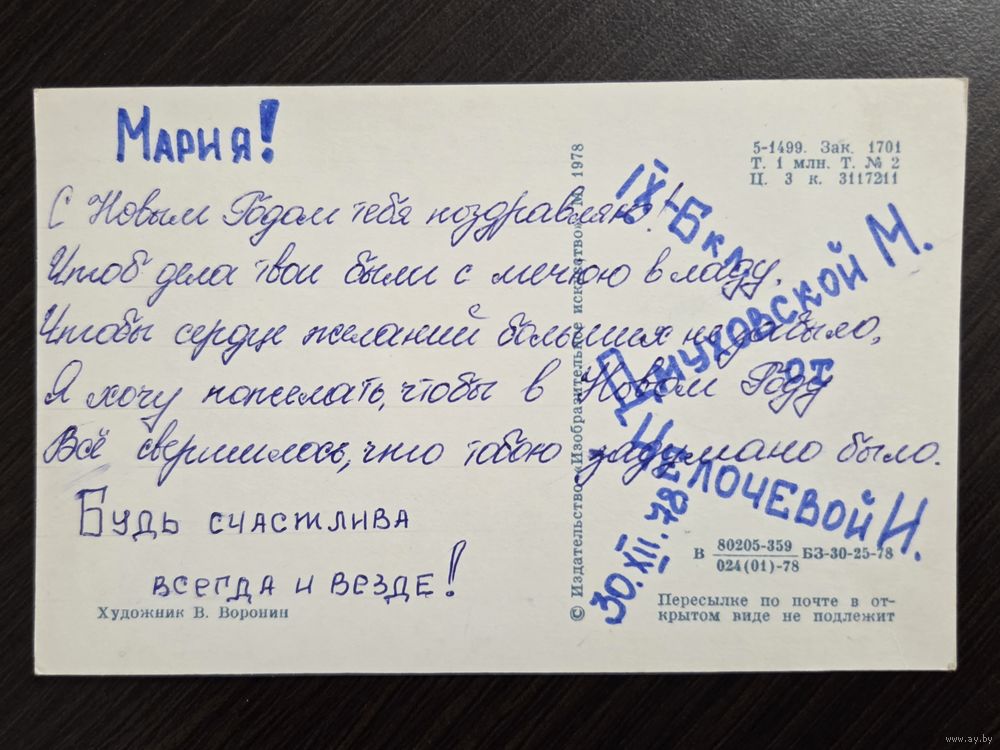 Мария!
С Новым Годом тебя поздравляю!
Чтоб дела твои были с мечтою в ладу,
Чтобы сердце желаний больших не забыло,
Я хочу пожелать, чтобы в Новом Году
Всё свершилось, что тобою задумано было.
Будь счастлива
всегда и везде!
Художник В. Воронин
© Издательство «Изобразительное искусство». М. 1978
5-1499. Зак. 1701
Т. 1 млн. Т. № 2
Ц. 3 к. 3117211
IX-Б кл.
М.
от
Щелочевой И.
30.XII.78
В 80205-359 БЗ-30-25-78
024(01)-78
Пересылке по почте в от-
крытом виде не подлежит
www.ay.by